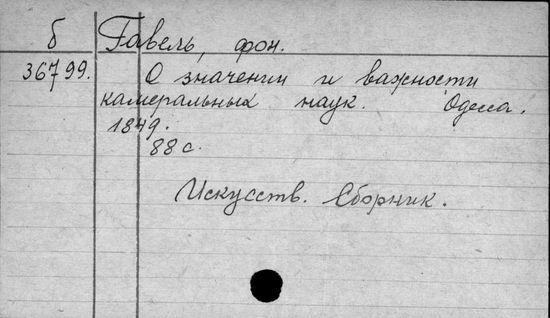 б Гавель, фон.
36799. О значении и важности
камеральных наук. Одесса.
1849.
88 с.
Искусств. Сборник.